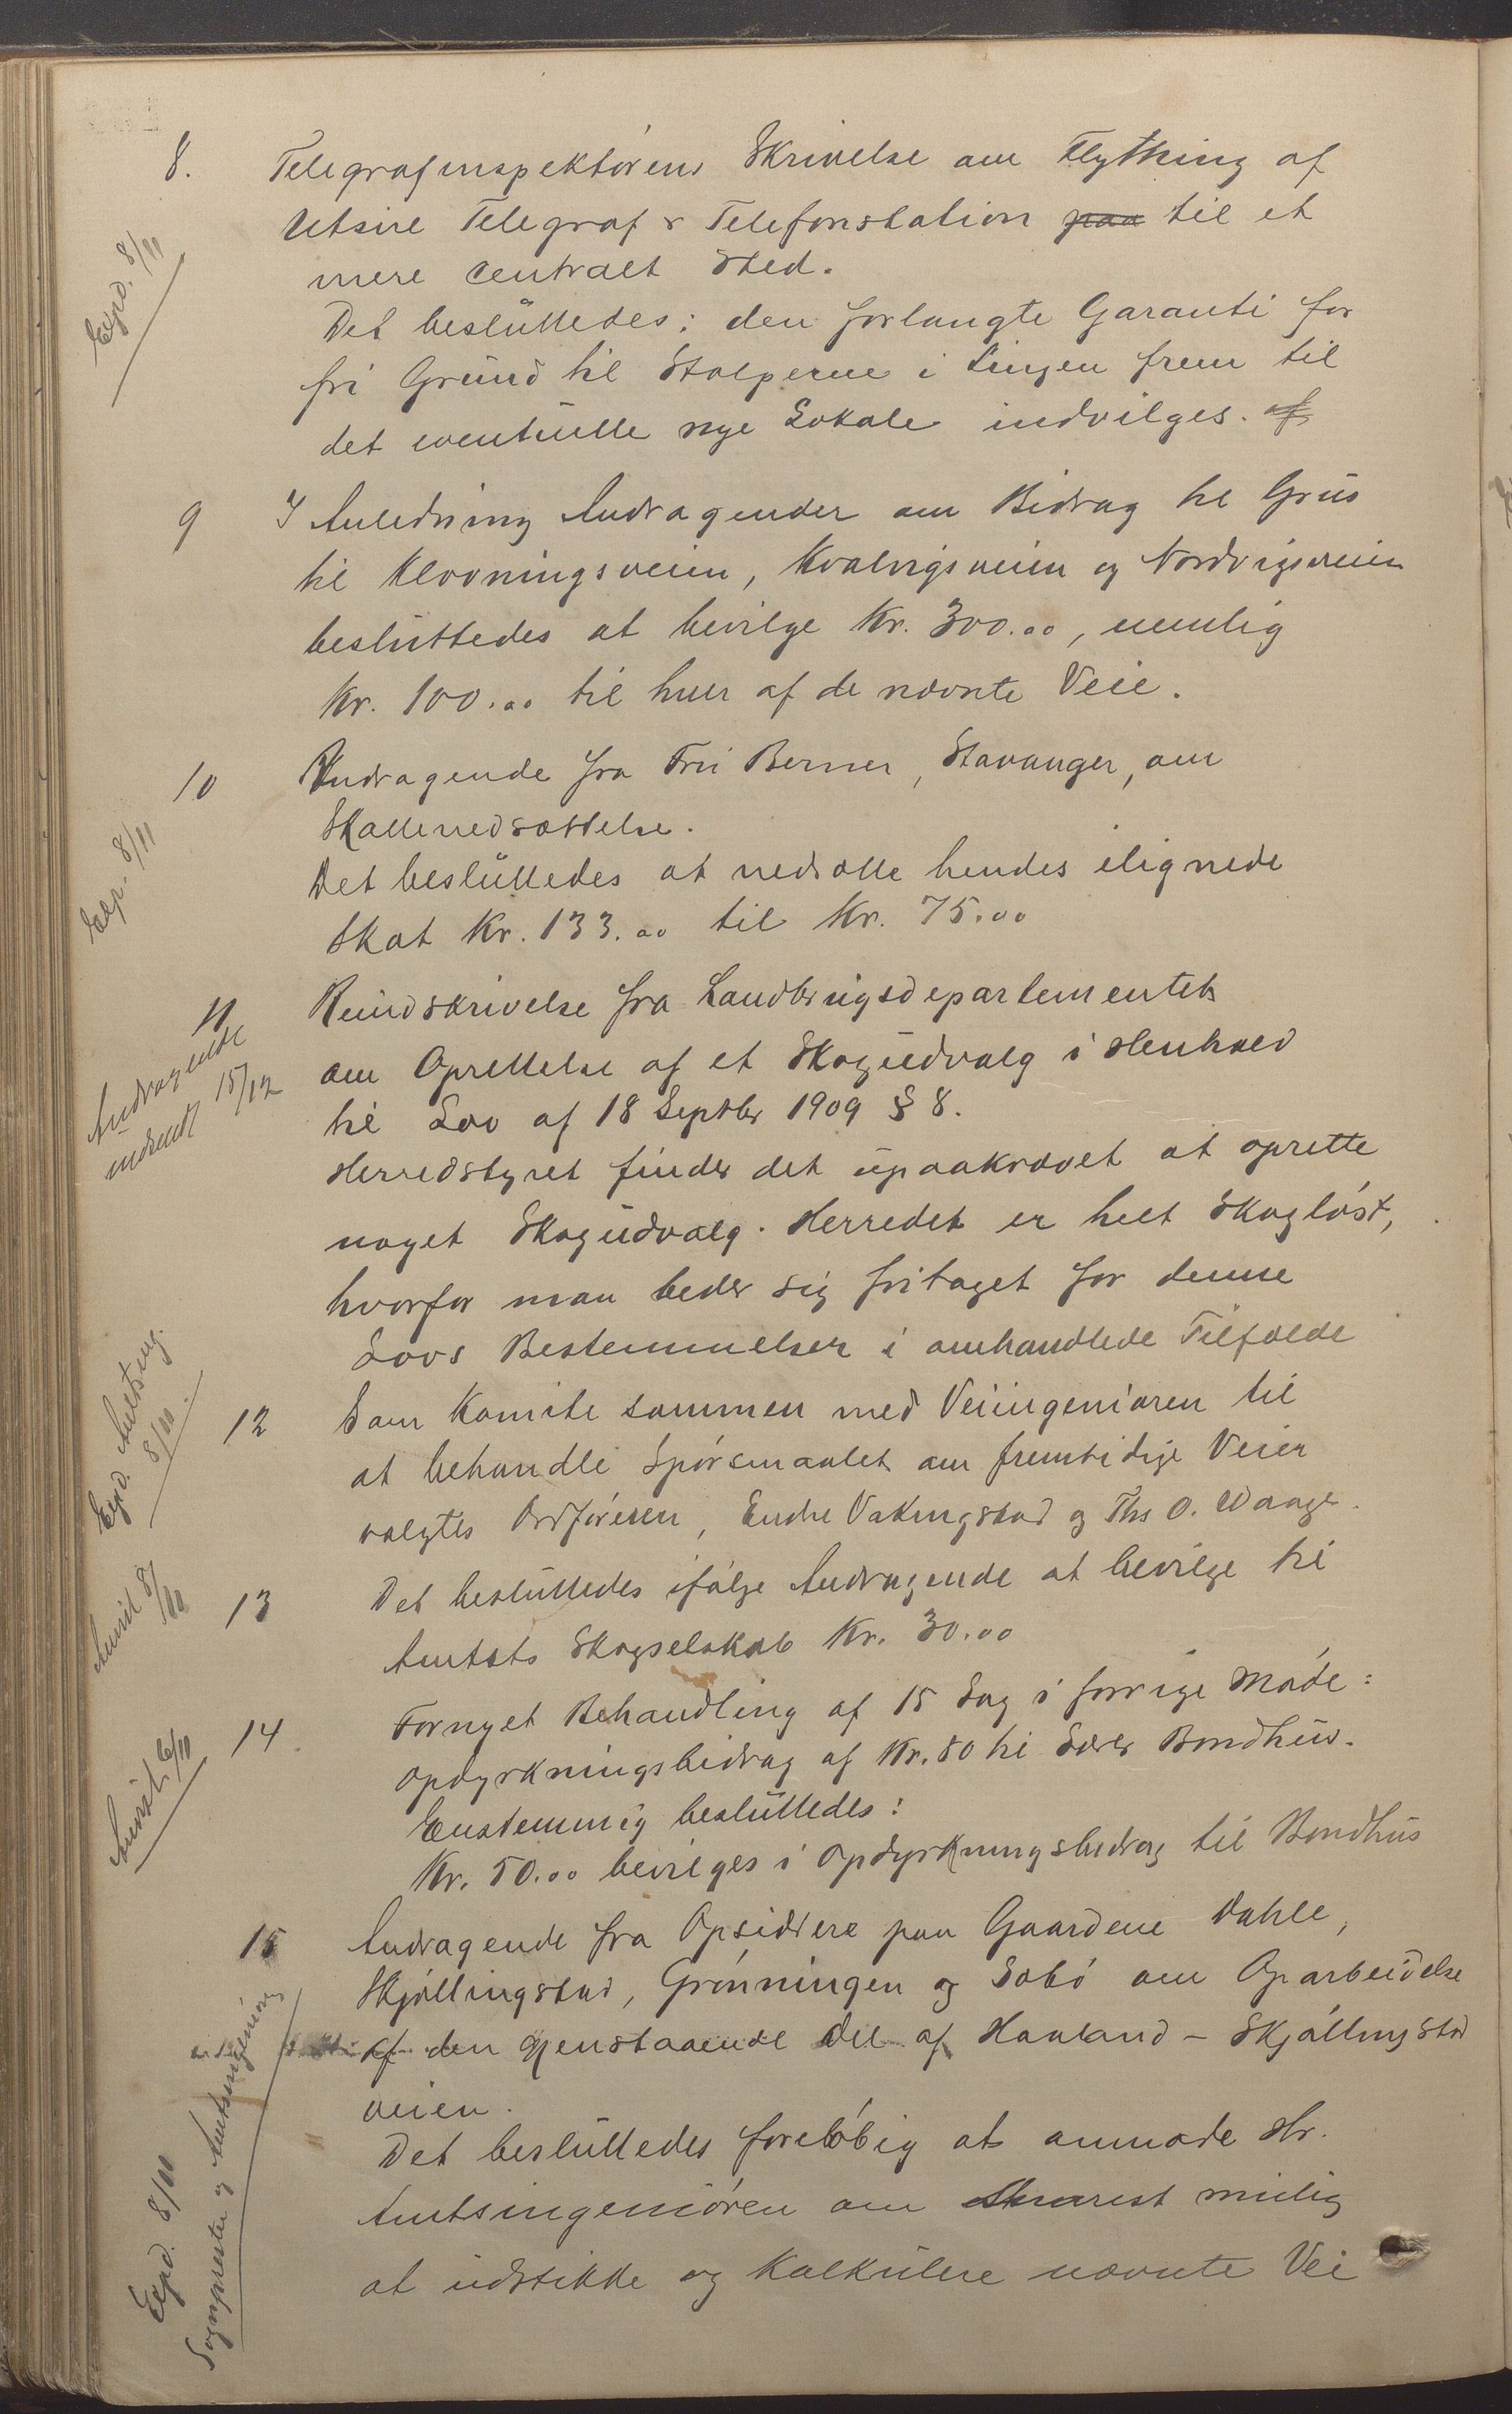 8. Telegrafinspektørens Skrivelse om Flytning af
Utsire Telegraf & Telefonstation paa til et
mere centralt Sted.
Expd. 8/11
Det besluttedes: den forlangte Garanti for
fri Grund til Stolperne i Linjen frem til
det eventuelle nye Lokale indvilges. af
9 I Anledning Andragender om Bidrag til Grus
til Klovningsveien, Kvalvigsveien og Nordvigsveien
besluttedes at bevilge Kr. 300.00, nemlig
Kr. 100.00 til hver af de nævnte Veie.
10 Andragende fra Fru Berner, Stavanger, om
Skattenedsættelse.
Exp. 8/11
Det besluttedes at nedsætte hendes ilignede
Skat Kr. 133.00 til Kr. 75.00
11 Rundskrivelse fra Landbrugsdepartementet
om Oprettelse af et Skogudvalg i Henhold
til Lov af 18 Septbr 1909 § 8.
Andragende
indsendt 15/12
Herredstyret finder det upaakrævet at oprette
noget Skogudvalg. Herredet er helt Skogløst,
hvorfor man beder sig fritaget for denne
Lovs Bestemmelser i omhandlede Tilfælde
12 Som Komite sammen med Veiingeniøren til
at behandle Spørsmaalet om fremtidige Veier
valgtes Ordføreren, Endre Vakingstad og Ths O. Waage.
Expd. Amtsing.
8/11.
13 Det besluttedes ifølge Andragende at bevilge til
Amtets Skogselskab Kr. 30.00
Anvist 8/11
14 Fornyet Behandling af 15 Sag i forrige Møde:
Opdyrkningsbidrag af Kr. 80 til Bondhus.
Enstemmig besluttedes:
Kr. 50.00 bevilges i Opdyrkningsbidrag til Bondhus
Anvist 6/11
15 Andragende fra Opsiddere paa Gaardene Dahle,
Skjøllingstad, Grønningen og Sobø om Oparbeidelse
af den gjenstaaende Del af Haaland - Skjøllingstad
veien.
Det besluttedes foreløbig at anmode Hr.
Amtsingeniøren om snarest mulig
at udstikke og kalkulere nævnte Vei
Expd. 8/11
Sogneprester og Amtsingeniør